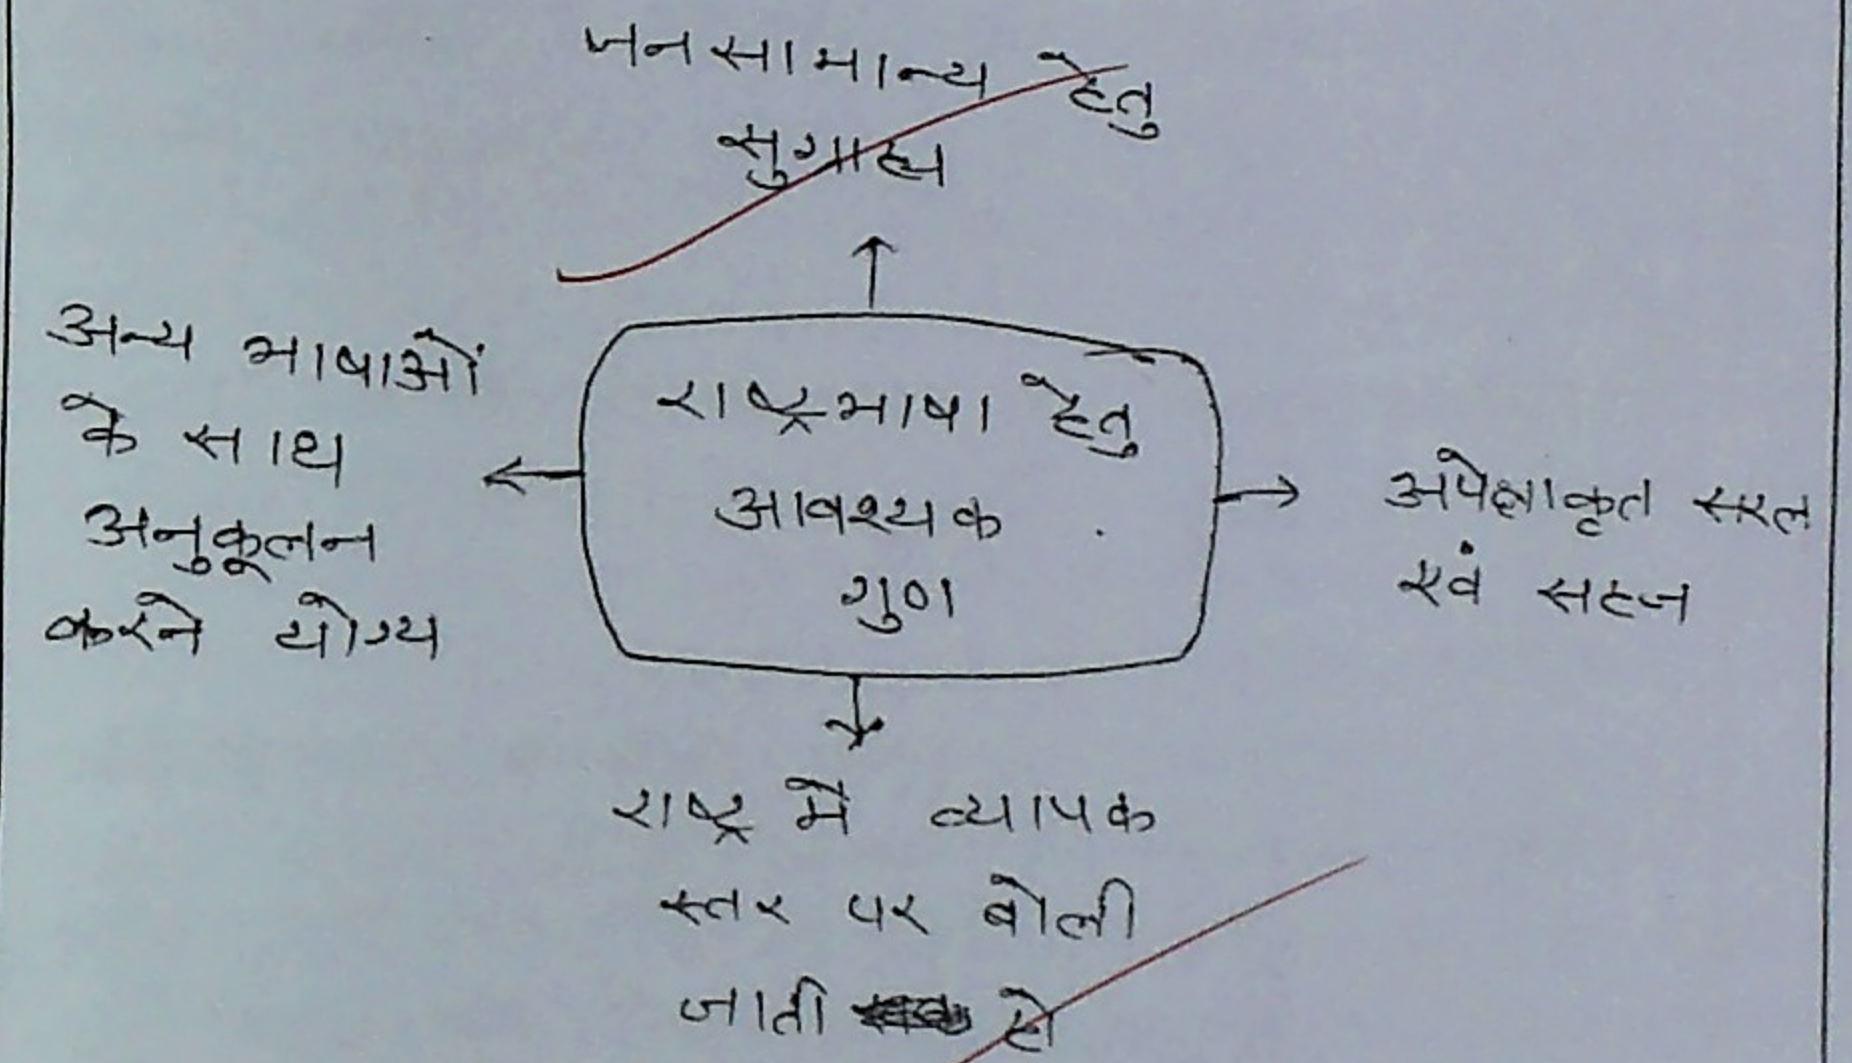 जनसामान्य हेतु
सुग्राह्य
अन्य भाषाओं
के साथ
अनुकूलन
करने योग्य
राष्ट्रभाषा हेतु
आवश्यक
गुण
अपेक्षाकृत सरल
एवं सहज
राष्ट्र में व्यापक
स्तर पर बोली
जाती हो